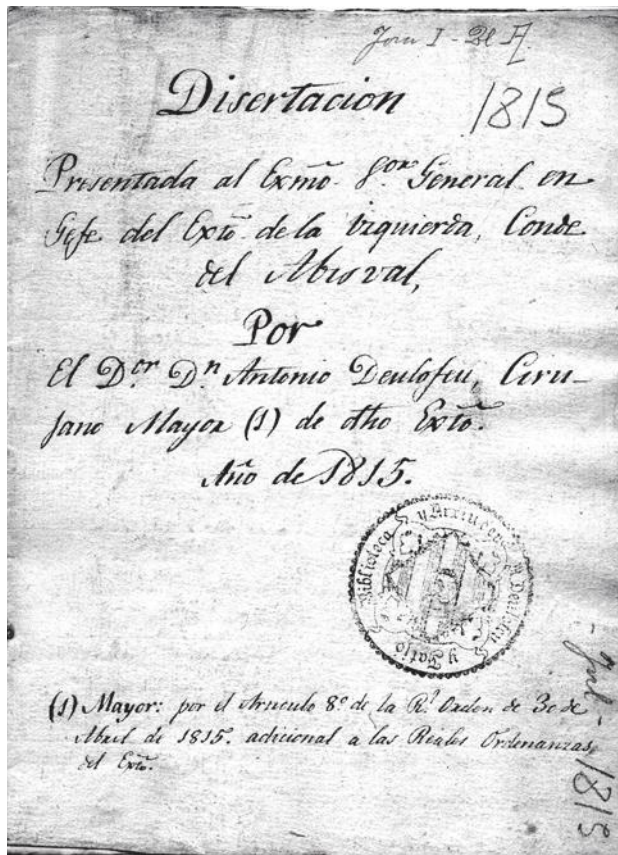 1815
Disertacion
Presentada al Exmõ. S.or General en
Gefe del Extõ. de la Izquierda, Conde
del Abisval,
Por
El D.or D.n Antonio Deulofeu, Ciru-
jano Mayor (1) de dho Extõ.
Año de 1815.
Biblioteca y Arxiu
Deulofeu y Fatjo
(1) Mayor: por el Articulo 8º de la R.l Orden de 30 de
Abril de 1815. adicional a las Reales Ordenanzas
del Extõ.
1815